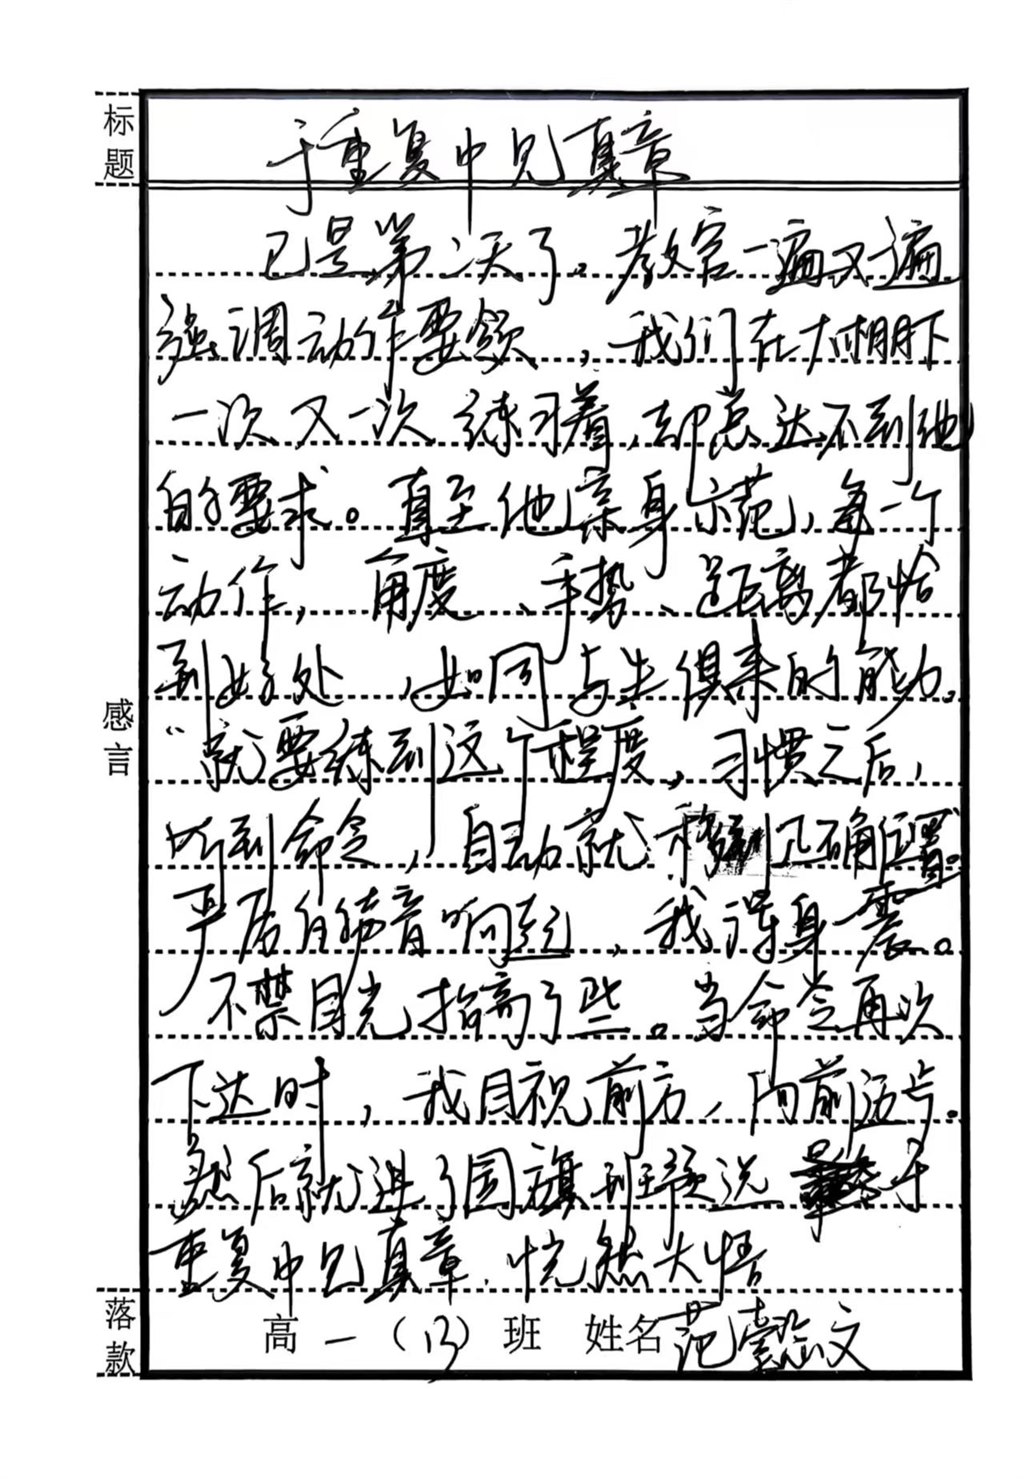 标题
于重复中见真章
已是第二天了。教官一遍又一遍
强调动作要领，我们在大棚下
一次又一次练习着，却总达不到他
的要求。直至他亲身示范，每一个
动作，角度、手势、距离都恰
到好处，如同与生俱来的能力。
“就要练到这个程度，习惯之后，
听到命令，自动就移到正确位置。”
严厉的声音响起，我浑身一震。
不禁目光抬高了些。当命令再次
下达时，我目视前方，向前迈步。
然后就进了国旗班预选 于
重复中见真章，恍然大悟
感言
落款
高一（13）班 姓名 范懿文